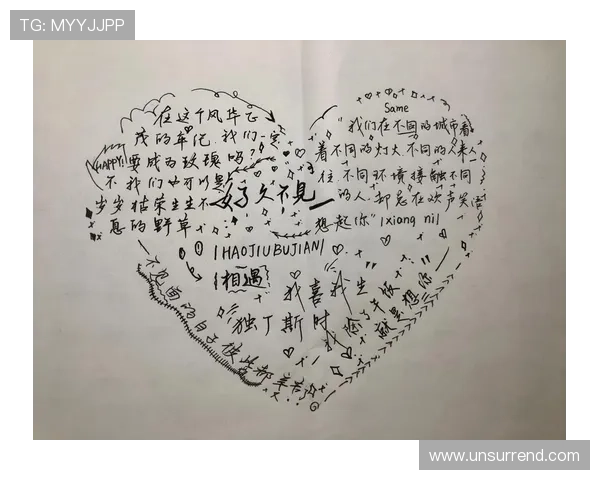 TG: MYYJJPP
在这个风华正
茂的年纪,我们一定
HAPPY!
要成为玫瑰吗?
不,我们也可以是
岁岁枯荣生生不
息的野草
Same
"我们在不同的城市看
着不同的灯火,不同的人来人
往,不同环境接触不同
的人,却总在欢声笑语
想起你"|xiang ni|
好久不见
|HAOJIUBUJIAN|
|相遇|
一不见面的日子
我喜
独丁斯时
除了午饭
就是想你"
www.unsurrend.com